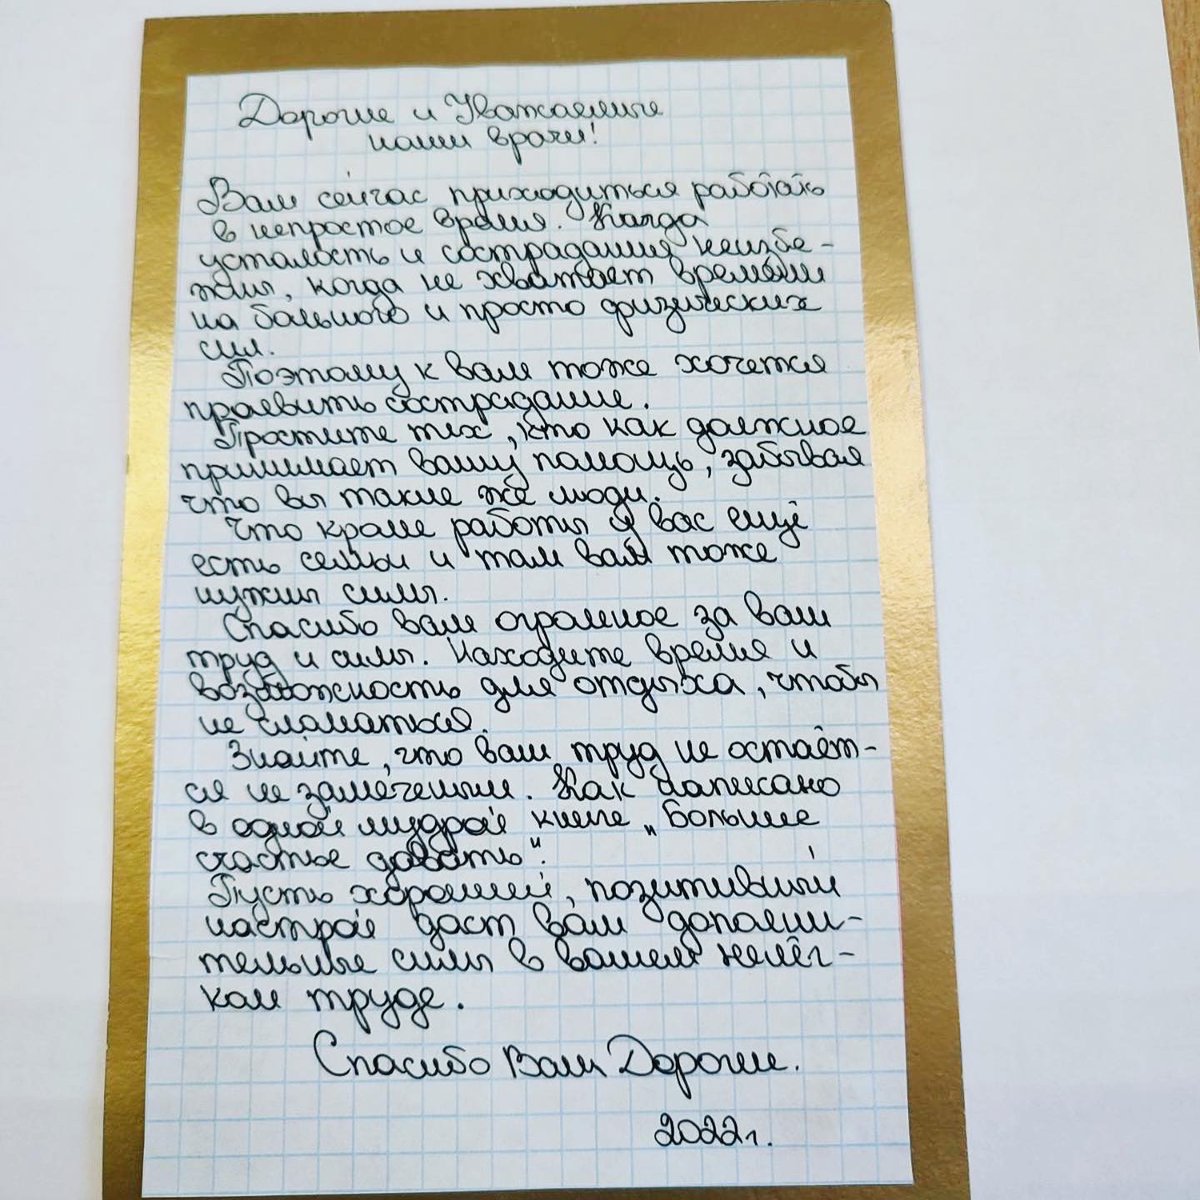 Дорогие и Уважаемые
наши врачи!
Вам сейчас приходиться работать
в непростое время. Когда
усталость и сострадания неизбе-
жны, когда не хватает времени
на больного и просто физических
сил.
Поэтому к вам тоже хочется
проявить сострадание.
Простите тех, кто как должное
принимает вашу помощь, забывая
что вы такие же люди.
Что кроме работы у вас ещё
есть семьи и там вам тоже
нужны силы.
Спасибо вам огромное за ваш
труд и силы. Находите время и
возможность для отдыха, чтобы
не сламаться.
Знайте, что ваш труд не остаёт-
ся не замеченным. Как написано
в одной мудрой книге „Больше
счастье давать".
Пусть хороший, позитивный
настрой даст вам дополни-
тельные силы в вашем нелёг-
ком труде.
Спасибо Вам Дорогие.
2022г.